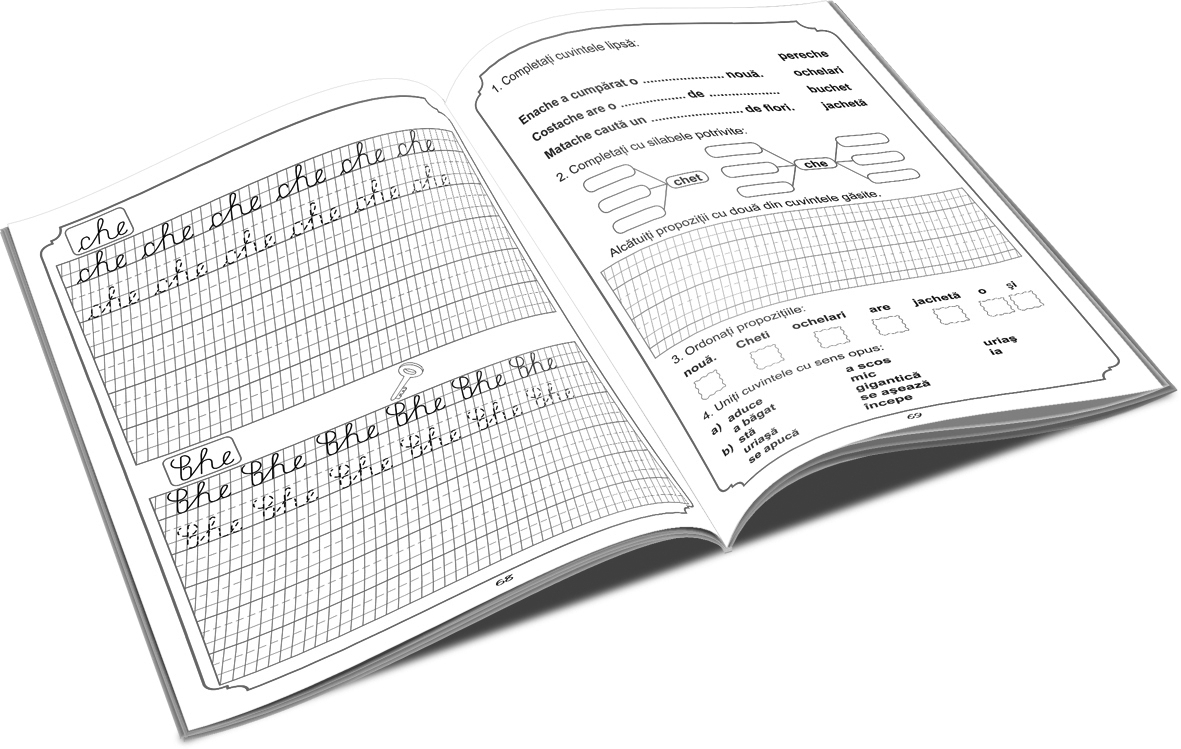 che
che che che che che che
che che che che che che
Che
Che Che Che Che Che Che
Che Che Che Che Che Che
68
1. Completați cuvintele lipsă:
Enache a cumpărat o ...................... nouă.
Costache are o ................. de ...................
Matache caută un ......................... de flori.
pereche
ochelari
buchet
jachetă
2. Completați cu silabele potrivite:
chet
che
Alcătuiți propoziții cu două din cuvintele găsite.
3. Ordonați propozițiile:
nouă. Cheti ochelari are jachetă o şi
4. Uniți cuvintele cu sens opus:
a) aduce
a băgat
b) stă
uriaşă
se apucă
a scos
mic
gigantică
se aşează
începe
uriaş
ia
69